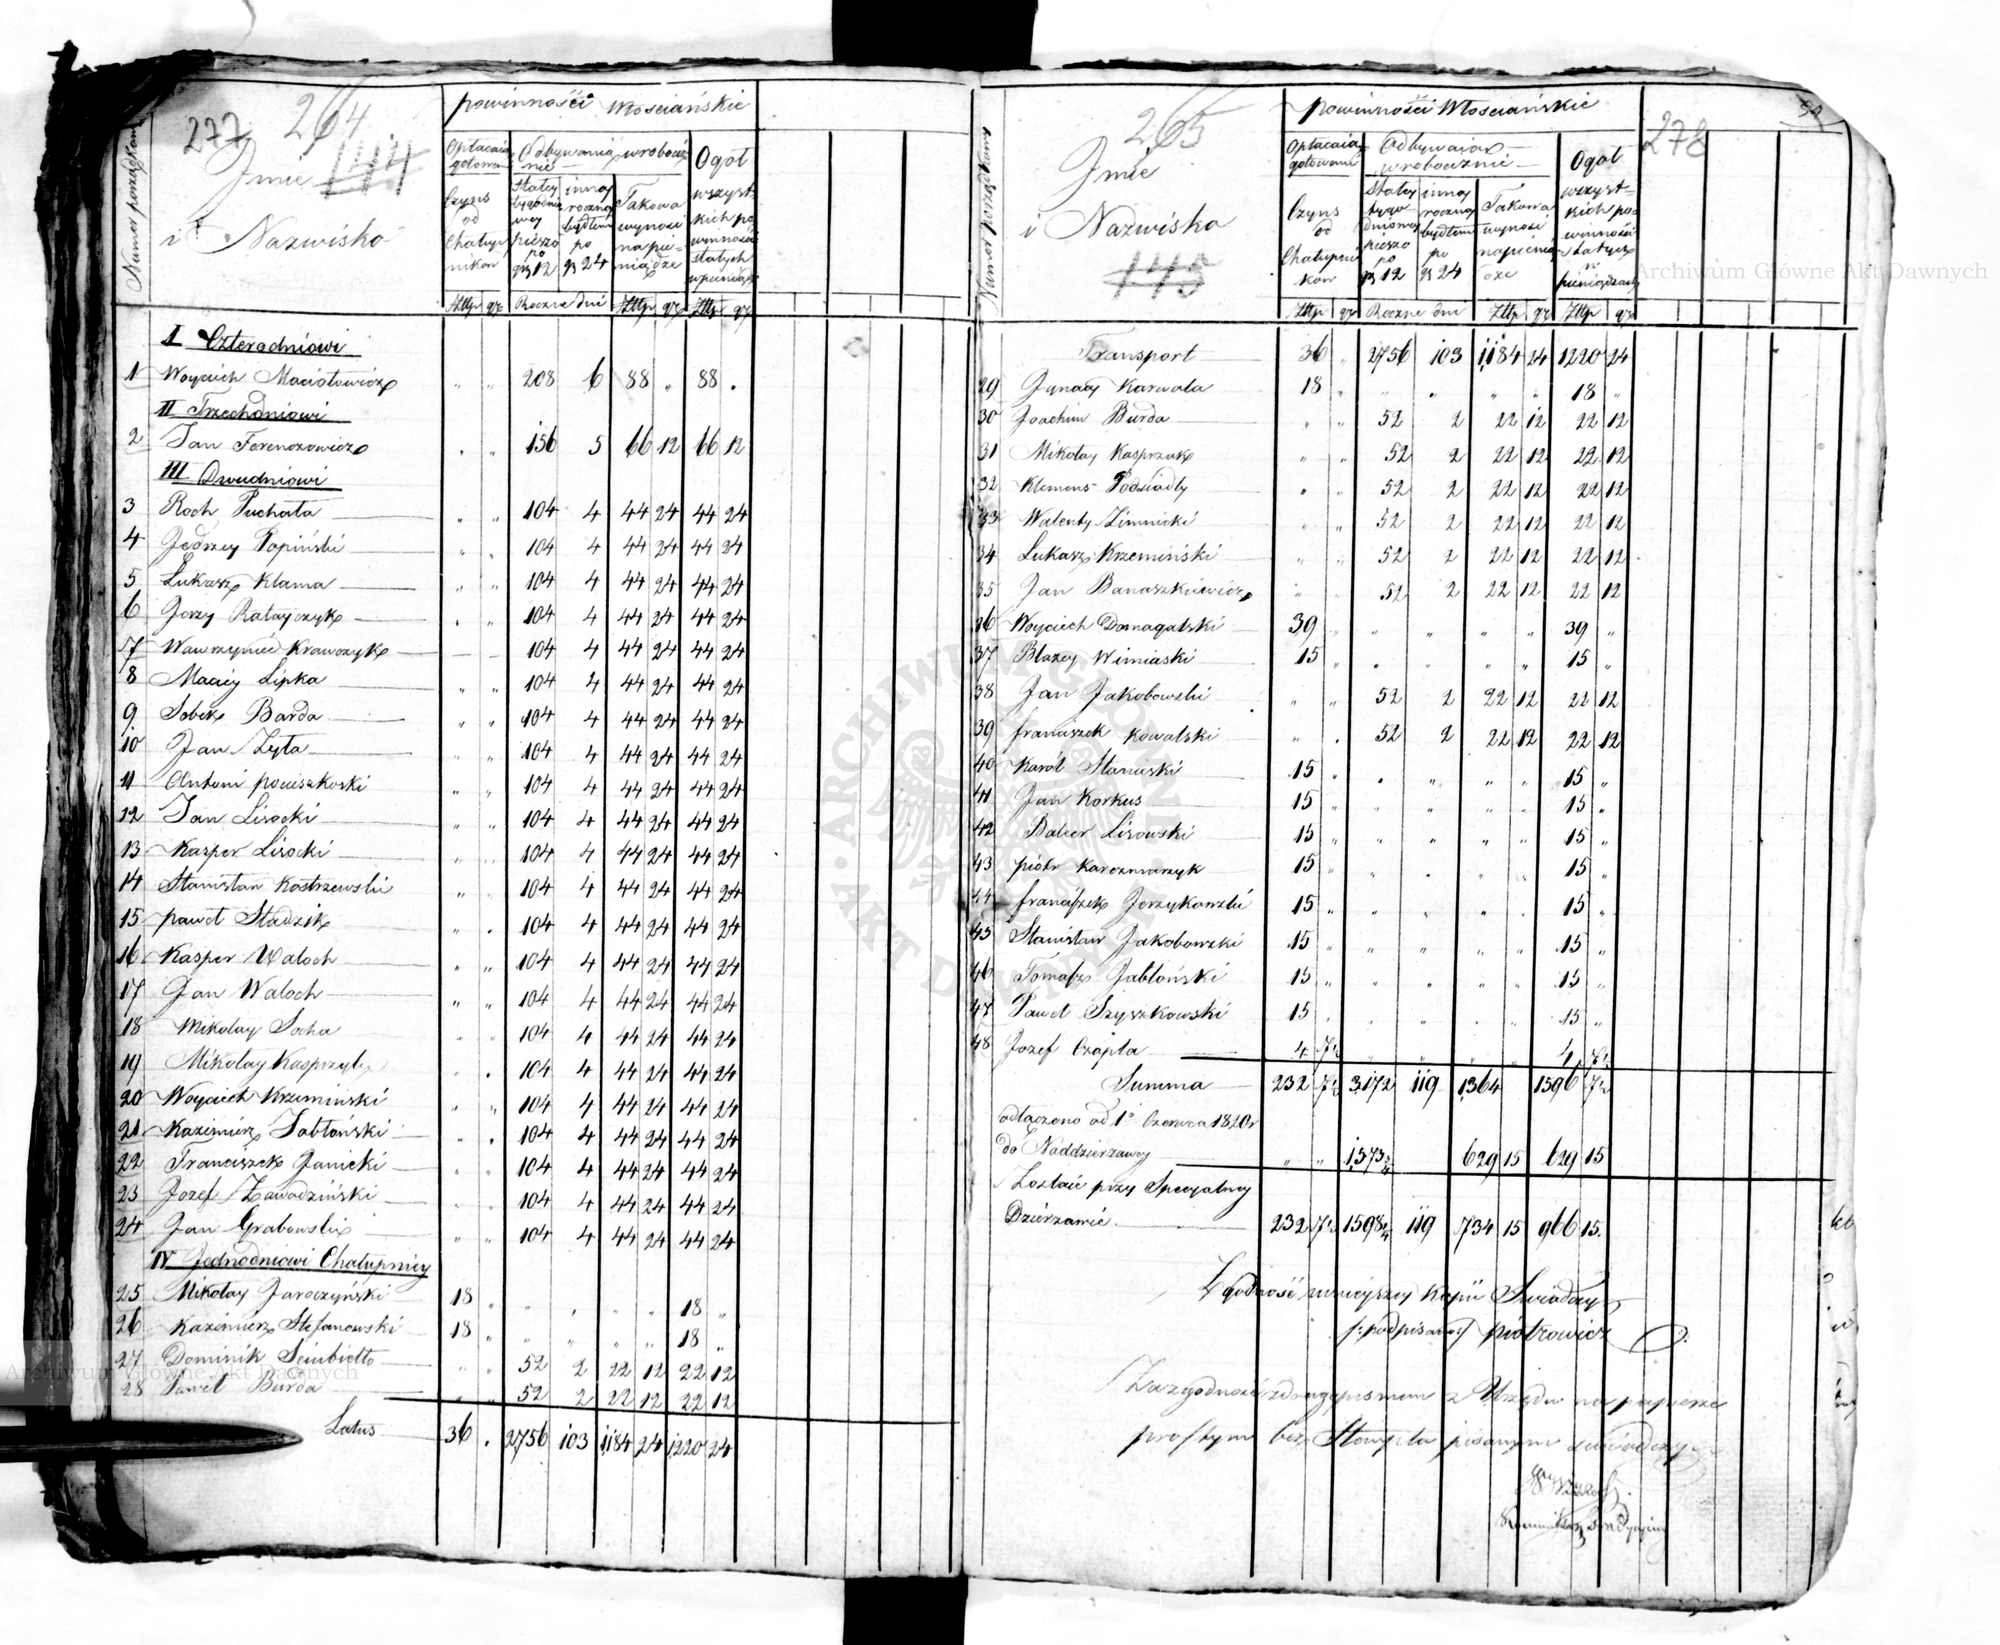 277 264
144
Numer porządkowy
Jmie
i Nazwisko
powinności Włosciańskie
Opłacaią gotowemi
Odbywaią w robociznie
Ogół wszystkich powinności stałych w pieniądz
Czyns od Chałupnikow
Stałey tygodniowey pieszo po gr 12
inney roczney bydłem po gr 24
Takowa wynosi na pieniądze
Złtp gr Roczne dni Złtp gr Złtp gr
I Czterodniowi
1 Woyciech Maciołowicz " " 208 6 88 " 88 "
II Trzechdniowi
2 Jan Ferenczowicz " " 156 5 66 12 66 12
III Dwudniowi
3 Roch Puchała " " 104 4 44 24 44 24
4 Jędrzey Popiński " " 104 4 44 24 44 24
5 Łukasz Klama " " 104 4 44 24 44 24
6 Jerzy Ratayczyk " " 104 4 44 24 44 24
7 Wawrzyniec Krawczyk 104 4 44 24 44 24
8 Maciey Lipka " " 104 4 44 24 44 24
9 Sobek Barda " " 104 4 44 24 44 24
10 Jan Zyta " " 104 4 44 24 44 24
11 Antoni " " 104 4 44 24 44 24
12 Jan Lisocki " " 104 4 44 24 44 24
13 Kasper Lisocki " " 104 4 44 24 44 24
14 Stanisław Kostrzewski " " 104 4 44 24 44 24
15 paweł Stadzik " " 104 4 44 24 44 24
16 Kasper Waloch " " 104 4 44 24 44 24
17 Jan Waloch " " 104 4 44 24 44 24
18 Mikołay Socha " " 104 4 44 24 44 24
19 Mikołay Kasprzyk " " 104 4 44 24 44 24
20 Woyciech Krzemiński " " 104 4 44 24 44 24
21 Kazimierz Jabłoński " " 104 4 44 24 44 24
22 Franciszek Janicki " " 104 4 44 24 44 24
23 Jozef Zawadziński " " 104 4 44 24 44 24
24 Jan Grabowski " " 104 4 44 24 44 24
IV Jednodniowi Chałupnicy
25 Mikołay Jaroczyński 18 " " " " " 18 "
26 Kazimierz Stefanowski 18 " " " " " 18 "
27 Dominik Sciubiołło " " 52 2 22 12 22 12
28 Paweł Burda " " 52 2 22 12 22 12
Latus 36 " 2756 103 1184 24 1220 24
265 278
145
Numer porządkowy
Jmie
i Nazwiska
powinności Włosciańskie
Opłacaią gotowemi
Odbywaiąc w robociznie
Ogół wszystkich powinności stałych w pieniądzach
Czyns od Chałupnikow
Stałey tygodniowey pieszo po gr 12
inney roczney bydłem po gr 24
Takowa wynosi na pieniądze
Złtp gr Roczne dni Złtp gr Złtp gr
Transport 36 " 2756 103 1184 24 1220 24
29 Jgnacy Karwala 18 " " " " " 18 "
30 Joachim Burda " " 52 2 22 12 22 12
31 Mikołay Kasprzak " " 52 2 22 12 22 12
32 Klemens Podsiadły " " 52 2 22 12 22 12
33 Walenty Zimnicki " " 52 2 22 12 22 12
34 Łukasz Krzemiński " " 52 2 22 12 22 12
35 Jan Banaszkiewicz " " 52 2 22 12 22 12
36 Woyciech Domagalski 39 " " " " " 39 "
37 Błazey Winiaski 15 " " " " " 15 "
38 Jan Jakobowski " " 52 2 22 12 22 12
39 franciszek Kowalski " " 52 2 22 12 22 12
40 Karól Staniski 15 " " " " " 15 "
41 Jan Korkus 15 " " " " " 15 "
42 Balcer Lisowski 15 " " " " " 15 "
43 piotr Karczmarzyk 15 " " " " " 15 "
44 franciszek 15 " " " " " 15 "
45 Stanisław Jakobowski 15 " " " " " 15 "
46 Tomasz Jabłoński 15 " " " " " 15 "
47 Paweł Szyszkowski 15 " " " " " 15 "
48 Jozef Czapla 4 7½ " " " " 4 7½
Summa 232 7½ 3172 119 1364 1596 7½
odłaczono od 1o Czerwca 1820r
do Naddzierzawcy " " 1573¾ 629 15 629 15
Zostaie przy Specyalney
Dzierzawie 232 7½ 1598¼ 119 734 15 966 15
Zgodność ninieyszey Kopii Swiadczy
/:podpisano:/ Piotrowicz
Za zgodność z drugopismem z Urzędu na papierze
prostym bez Stempla pisanym swiadczy
Archiwum Główne Akt Dawnych
Archiwum Główne Akt Dawnych
ARCHIWUM GŁÓWNE AKT DAWNYCH